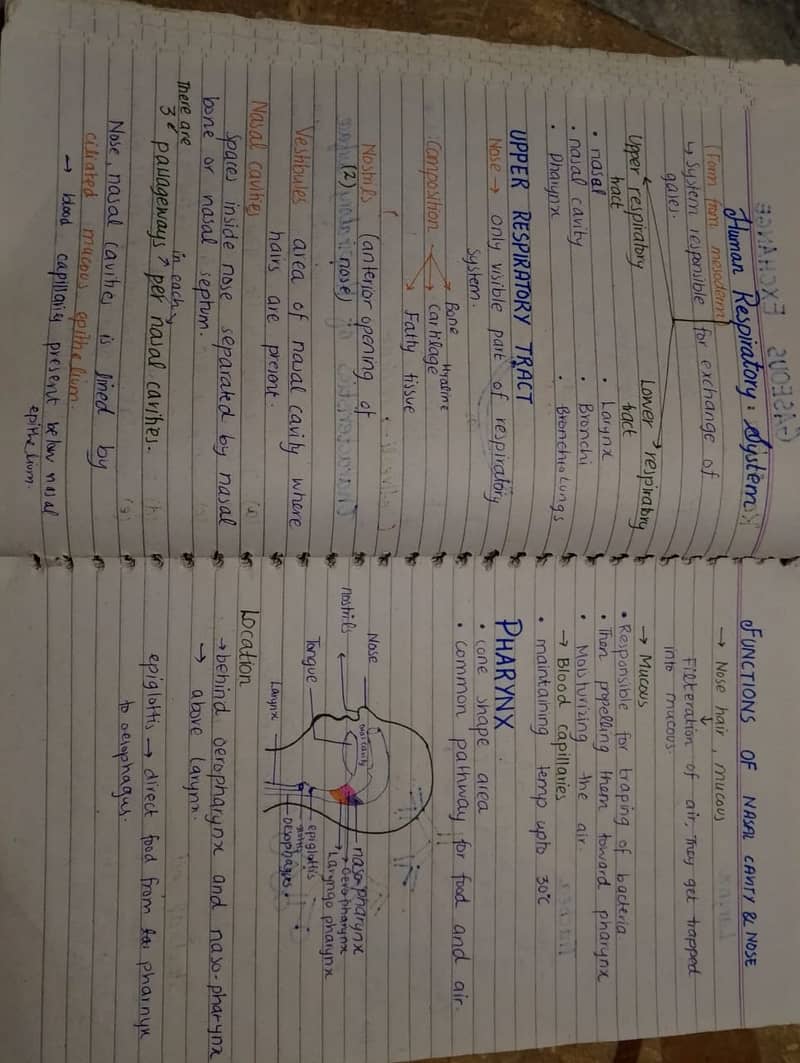 Human Respiratory System
(Form from mesoderm)
↳ System responsible for exchange of
gases.
Upper respiratory
tract
• nasal
• nasal cavity
• Pharynx
Lower respiratory
tract
• Larynx
• Bronchi
• Bronchio Lungs
UPPER RESPIRATORY TRACT
Nose → only visible part of respiratory
System.
Composition
Bone
Hyaline
Cartilage
Fatty tissue
Nostrils (anterior opening of
(2) nose)
Vestibules area of nasal cavity where
hairs are present.
Nasal cavities
Spaces inside nose separated by nasal
bone or nasal septum.
There are
in each
3 passageways per nasal cavities.
Nose, nasal cavities is lined by
ciliated mucous epithelium.
→ blood capillary present below nasal
epithelium.
FUNCTIONS OF NASAL CAVITY & NOSE
→ Nose hair, mucous
↓
Filteration of air, They get trapped
into mucous.
→ Mucous
• Responsible for traping of bacteria
• Then propelling them toward pharynx
• Moisturizing the air.
→ Blood capillaries
• maintaining temp upto 30°C
PHARYNX
• cone shape area
• common pathway for food and air.
Nose
nostrils
Tongue
Larynx
naso-pharynx
→ oeropharynx
→ Laryngo pharynx
epiglottis
oesophages.
Location
→ behind oeropharynx and naso-pharynx
→ above larynx.
epiglottis → direct food from pharnyx
to oesophagus.